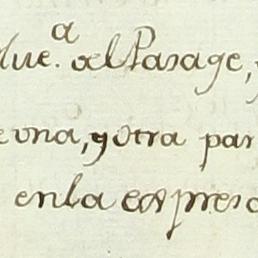 que.ª del Pasage,
e una, y otra par
en la expres